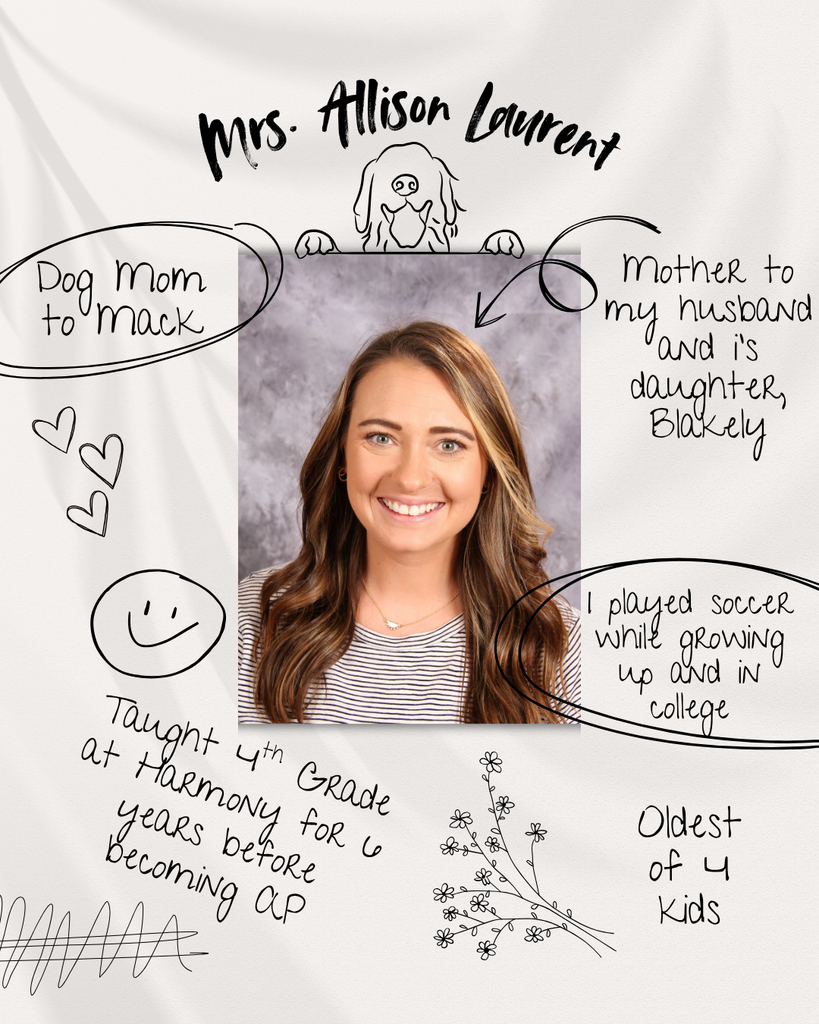 Mrs. Allison Laurent
Dog Mom
to Mack
Mother to
my husband
and i's
daughter,
Blakely
I played soccer
while growing
up and in
college
Taught 4th Grade
at Harmony for 6
years before
becoming AP
Oldest
of 4
kids